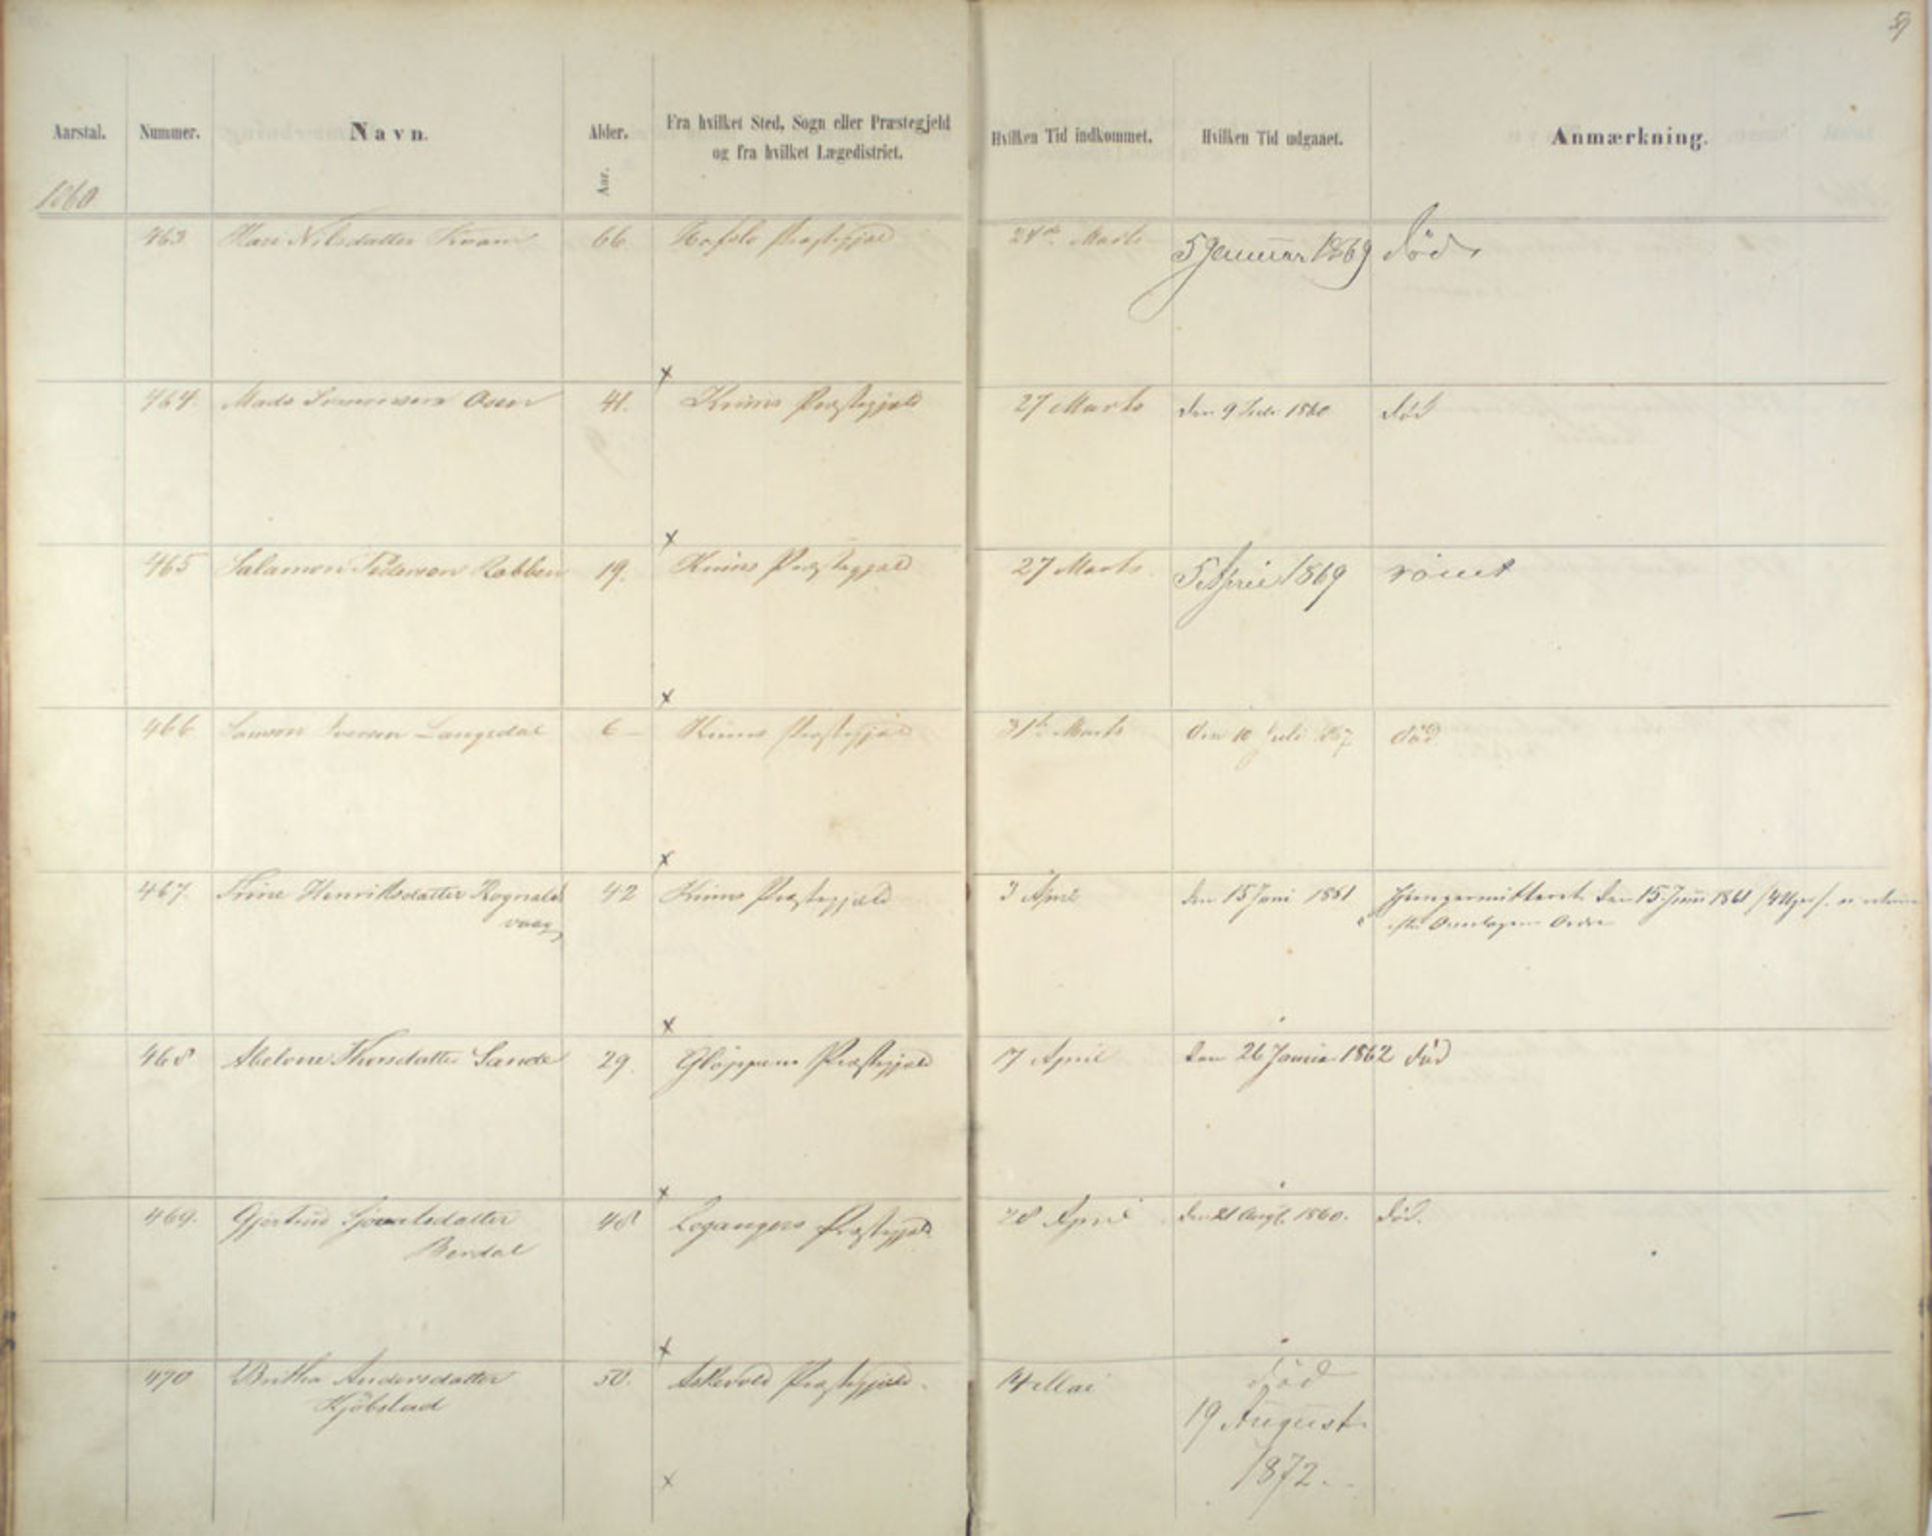 59
Aarstal. Nummer. Navn. Alder. Fra hvilket Sted, Sogn eller Præstegjeld Hvilken Tid indkommet. Hvilken Tid udgaaet. Anmærkning.
og fra hvilket Lægedistrict.
Aar.
1860
463 Kari Nilsdatter Kvam 66 Hafslo Præstegjeld 24de Marts 5 Januar 1869 död
464. Mads Oen 41. Kinns Præstegjeld 27 Marts den 9 1860 död
465 Salamon Pederson Robben 19. Kinns Præstegjeld 27 Marts 5 April 1869 römt
466 Iversen Langedal 6 Kinns Præstegjeld 31te Marts den 10 Juli död
467. Trine Henriksdatter Rognalds 42 Kinns Præstegjeld 3 April den 15 Juni 1861 Hjempermitteret den 15 Juni 1861
vaag efter Overlægens Ordre
468 Abelone Thorsdatter Sande 29. Gloppens Præstegjeld 17 April den 26 Januar 1862 död
469. Gjertrud datter 48 Præstegjeld 28 April den 21 Augt. 1860. död.
Berdal
470 Britha Andersdatter 50. Askevold Præstegjeld. 14 Mai död
Kjöbstad 19 August
1872.